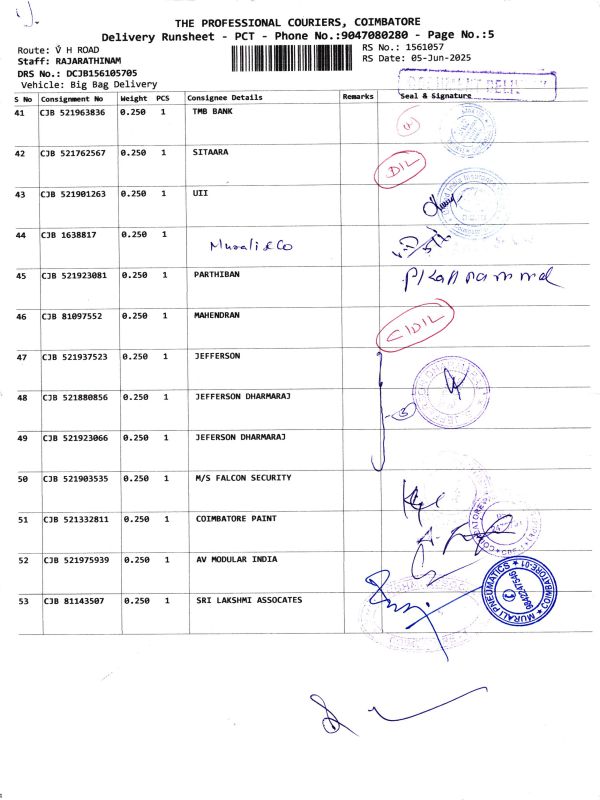 THE PROFESSIONAL COURIERS, COIMBATORE
Delivery Runsheet - PCT - Phone No.:9047080280 - Page No.:5
Route: V H ROAD
RS No.: 1561057
Staff: RAJARATHINAM
RS Date: 05-Jun-2025
DRS No.: DCJB156105705
Vehicle: Big Bag Delivery
S No Consignment No Weight PCS Consignee Details Remarks Seal & Signature
41 CJB 521963836 0.250 1 TMB BANK
42 CJB 521762567 0.250 1 SITAARA
DIL
43 CJB 521901263 0.250 1 UII
44 CJB 1638817 0.250 1 Murali & Co
45 CJB 521923081 0.250 1 PARTHIBAN
46 CJB 81097552 0.250 1 MAHENDRAN
C/DIL
47 CJB 521937523 0.250 1 JEFFERSON
48 CJB 521880856 0.250 1 JEFFERSON DHARMARAJ
3
49 CJB 521923066 0.250 1 JEFERSON DHARMARAJ
50 CJB 521903535 0.250 1 M/S FALCON SECURITY
51 CJB 521332811 0.250 1 COIMBATORE PAINT
52 CJB 521975939 0.250 1 AV MODULAR INDIA
53 CJB 81143507 0.250 1 SRI LAKSHMI ASSOCATES
MURALI PNEUMATICS
COIMBATORE-01
9842247546